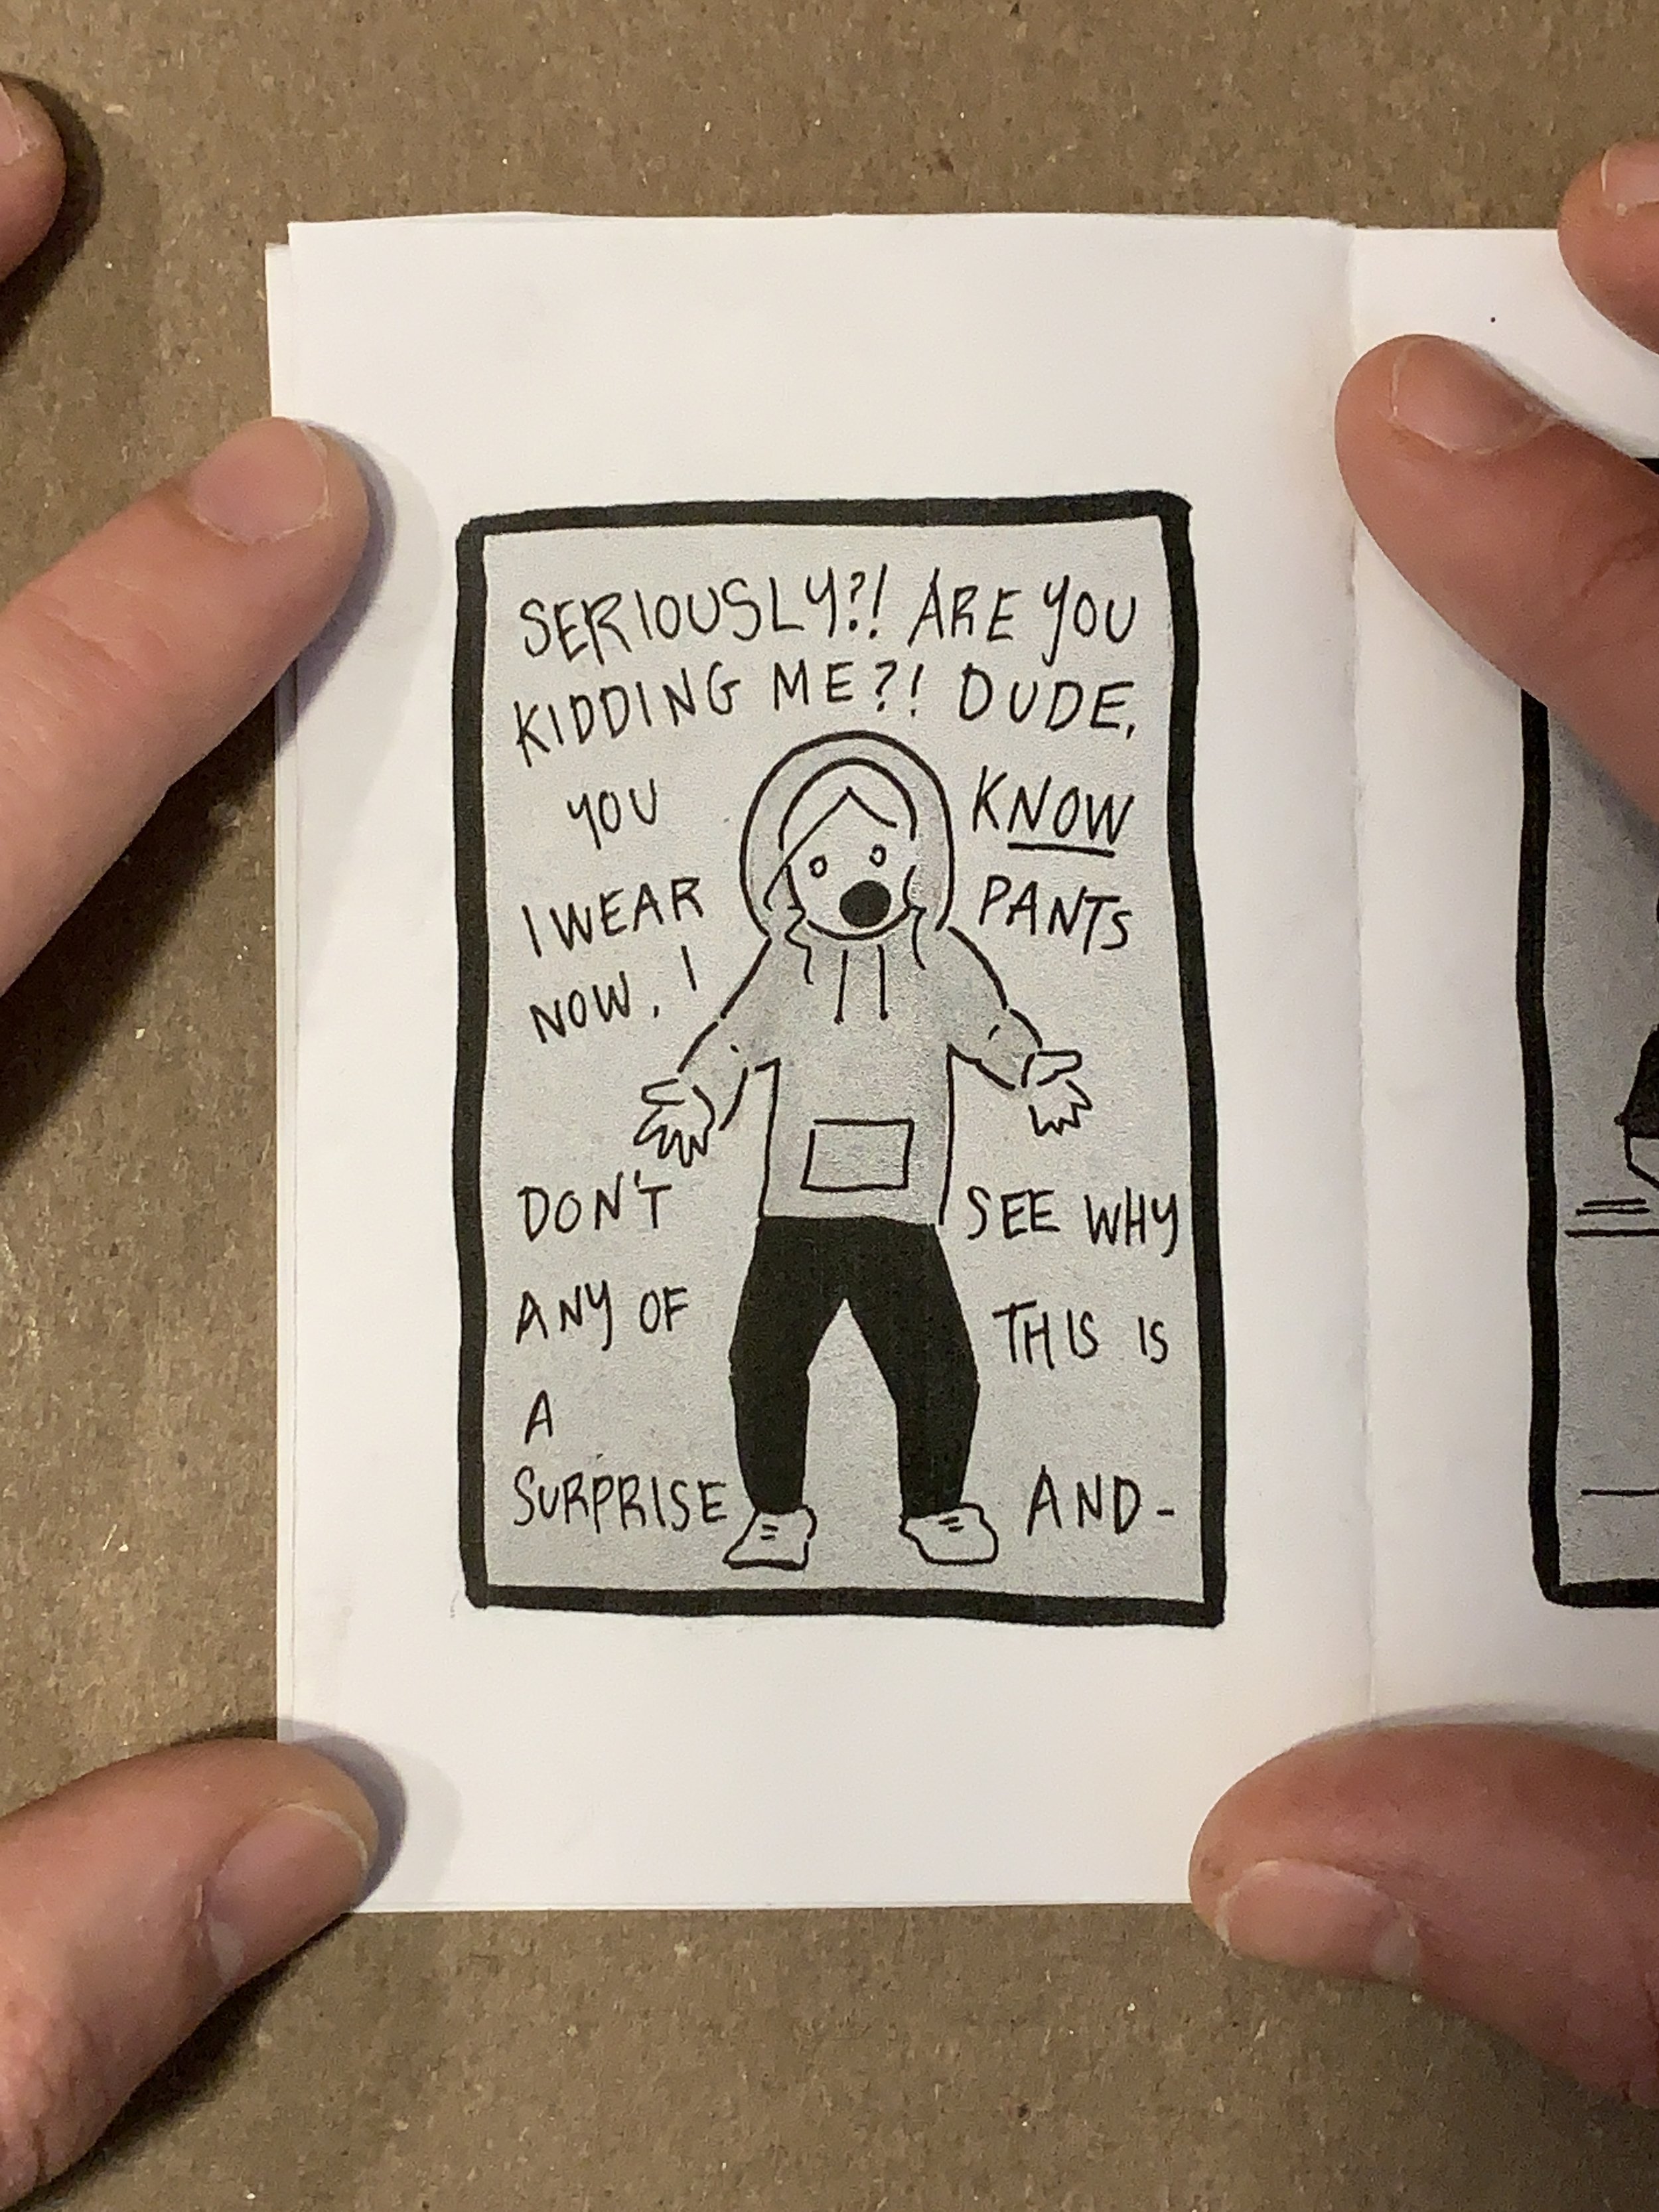 SERIOUSLY?! ARE YOU
KIDDING ME?! DUDE,
YOU KNOW
I WEAR PANTS
NOW. I
DON'T SEE WHY
ANY OF THIS IS
A
SURPRISE AND-